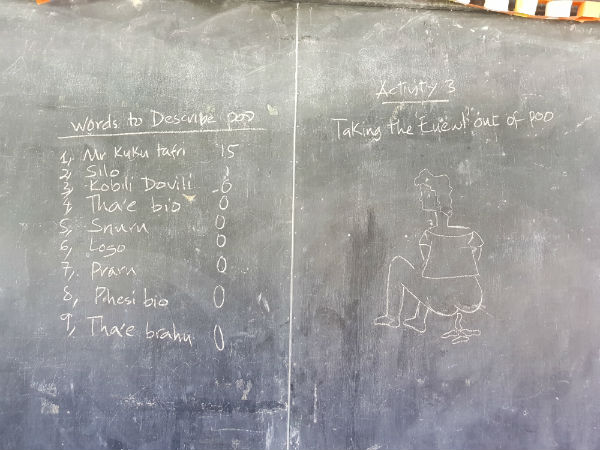 Words to Describe poo
1, Mr Kuku tafri 15
2, Silo 1
3, Kobili Dovili 0
4, Tha'e bio 0
5, Snuru 0
6, Logo 0
7, Praru 0
8, Phesi bio 0
9, Tha'e brahu 0
Activity 3
Taking the out of poo